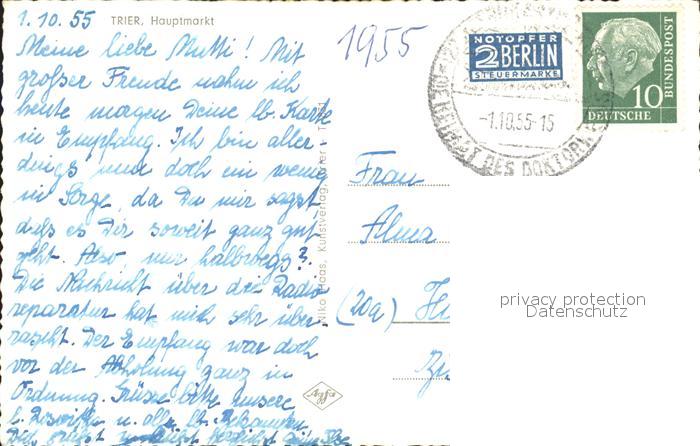 1.10.55 TRIER, Hauptmarkt
Meine liebe Mutti! Mit
großer Freude nahm ich
heute morgen Deine lb. Karte
in Empfang. Ich bin aller-
dings nun doch ein wenig
in Sorge, da Du mir sagst
daß es Dir soweit ganz gut
geht. Also nur halbwegs?
Die Nachricht über die Radio
reparatur hat mich sehr über-
rascht. Der Empfang war doch
vor der Abholung ganz in
Ordnung. Grüße bitte unsere
u. alle lb. Bekannten
Dich grüßt
Kunstverlag, Trier
Agfa
1955
NOTOPFER
2 BERLIN
STEUERMARKE
10
DEUTSCHE
BUNDESPOST
-1.10.55-15
DES DOKTOR
Frau
Alma
(20a)
privacy protection
Datenschutz